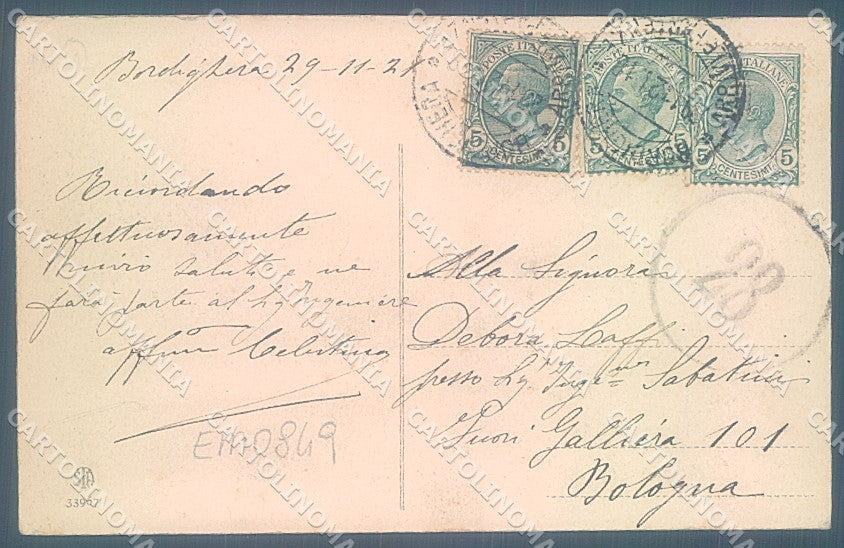 Bordighera 29-11-21
Ricordando
affettuosamente
invio saluti e ne
farà parte al Sig Ingegniere
affma Celestina
EMA0849
33947
POSTE ITALIANE
5 CENTESIMI 5
POSTE ITALIANE
5 CENTESIMI 5
POSTE ITALIANE
5 CENTESIMI 5
28
Alla Signora
Debora
presso Sig Ingere Sabatini
Fuori Galliera 101
Bologna
CARTOLINOMANIA